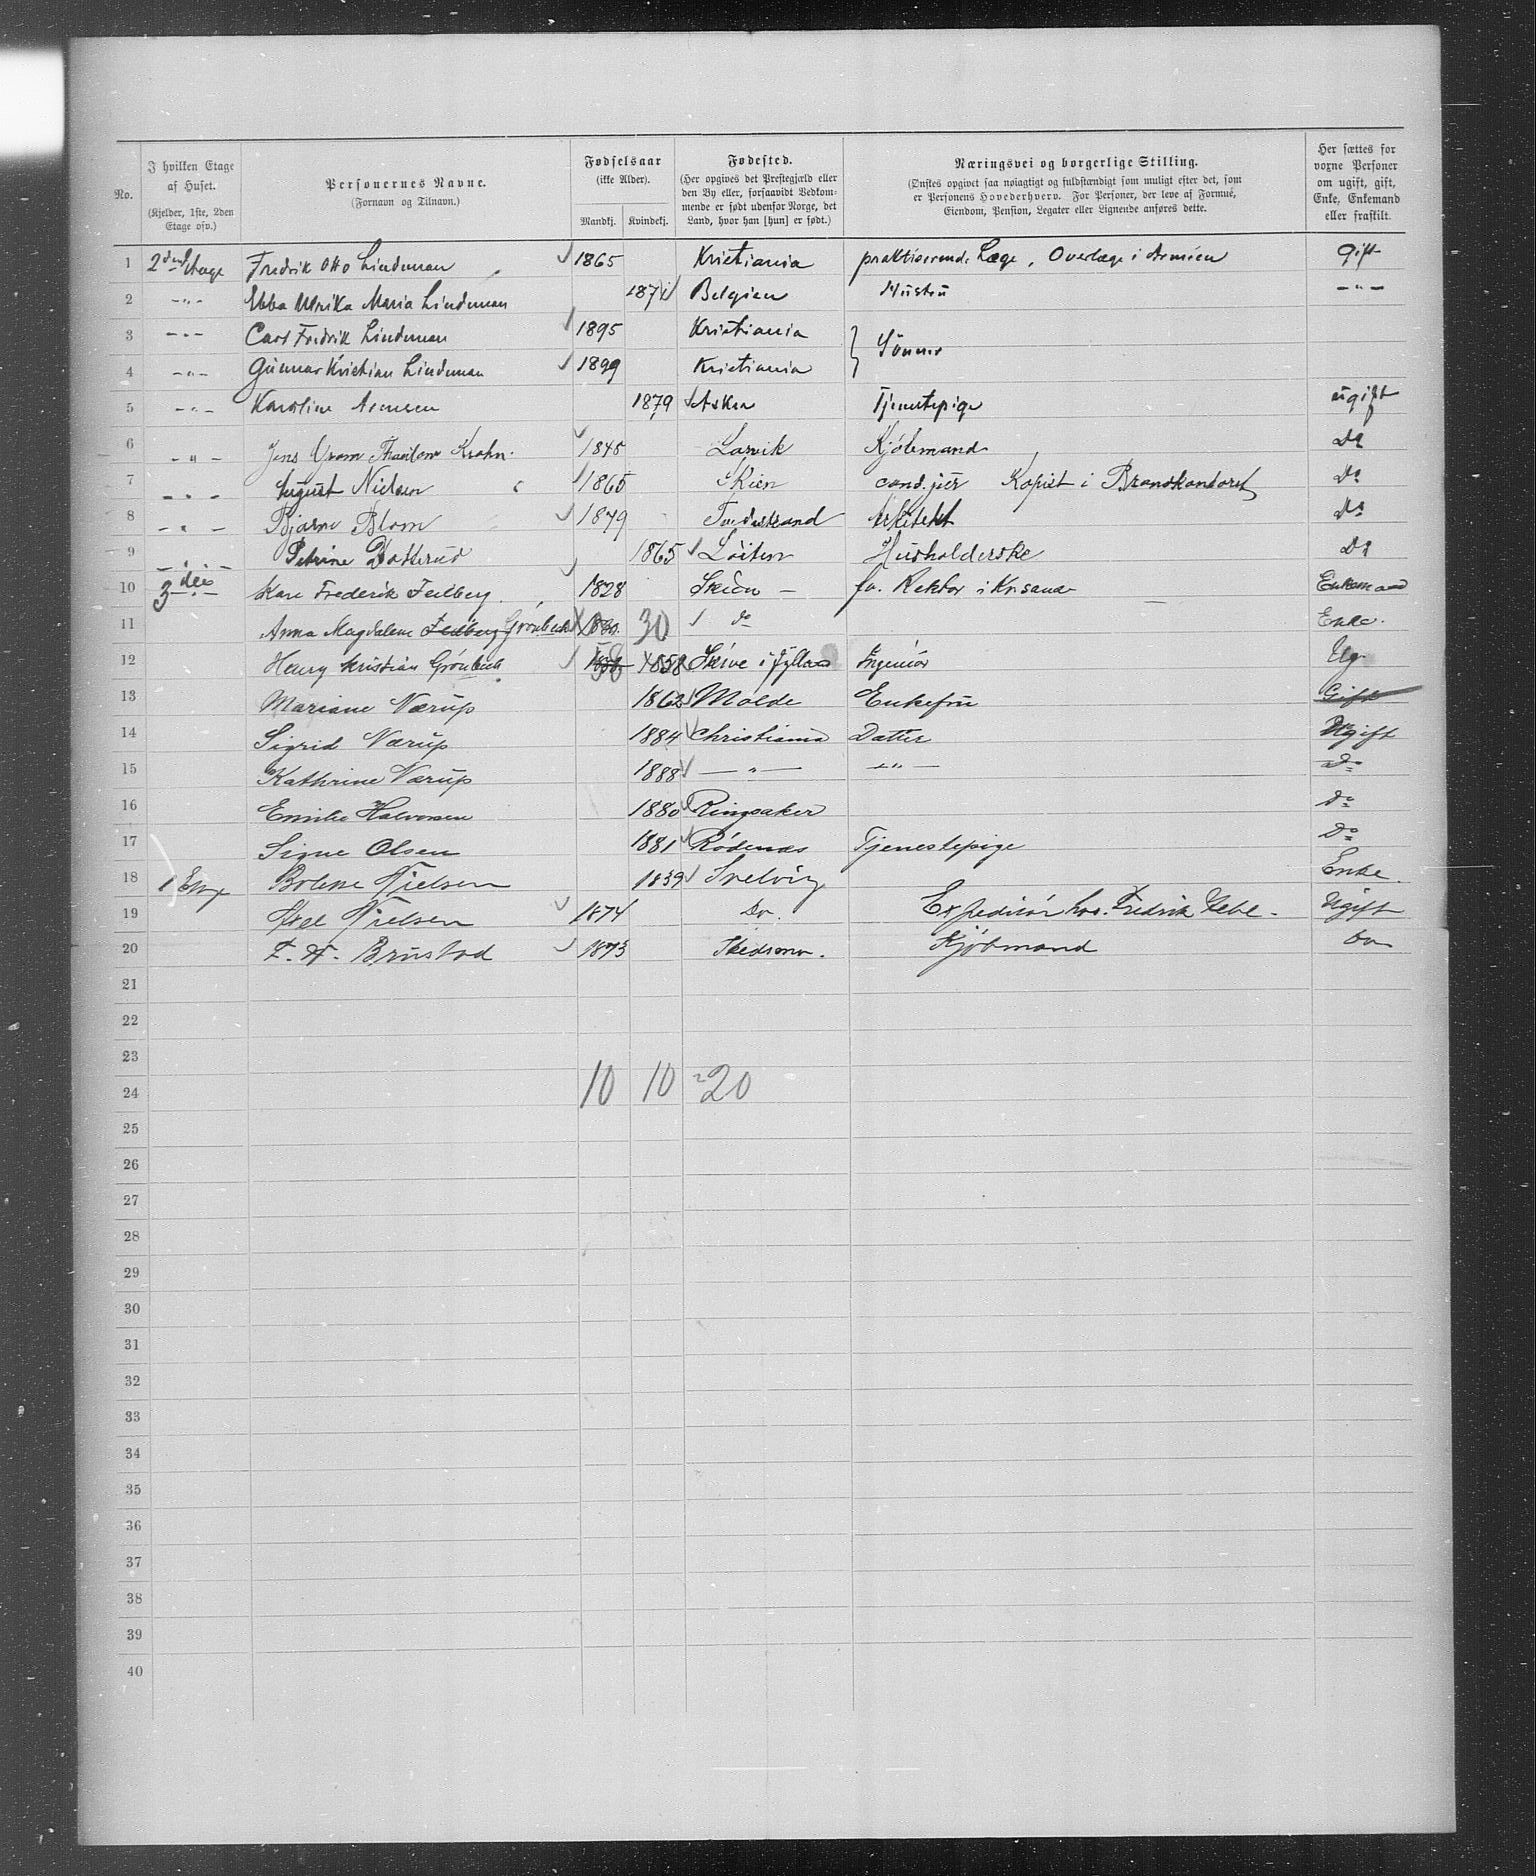 No.
I hvilken Etage af Huset. (Kjelder, 1ste, 2den Etage osv.)
Personernes Navne. (Fornavn og Tilnavn.)
Fødselsaar (ikke Alder). Mandkj. Kvindekj.
Fødested. (Her opgives det Prestegjæld eller den By eller, forsaavidt Vedkommende er født udenfor Norge, det Land, hvor han [hun] er født.)
Næringsvei og borgerlige Stilling. (Ønskes opgivet saa nøiagtigt og fuldstændigt som muligt efter det, som er Personens Hovederhverv. For Personer, der leve af Formue, Eiendom, Pension, Legater eller Lignende anføres dette.
Her sættes for voxne Personer om ugift, gift, Enke, Enkemand eller fraskilt.
1 2den Etage Fredrik Otto Lindeman 1865 Kristiania praktiserende Læge, Overlæge i Armeen Gift
2 -"- Ebba Ulrika Maria Lindeman 1874 Belgien Hustru -"-
3 -"- Carl Fredrik Lindeman 1895 Kristiania } Sønner
4 -"- Gunnar Kristian Lindeman 1899 Kristiania
5 -"- Karoline Arnesen 1879 Asker Tjenestepige ugift
6 -"- Jens Thaulow Krohn. 1848 Larvik Kjøbmand Do
7 -"- August Nielsen 1865 Skien cand. jur Kopist i Brandkontoret Do
8 -"- Bjarne Blom 1879 Arkitekt Do
9 -"- Petrine 1865 Løiten Husholderske Do
10 3die Frederik Feilberg. 1828 Skien - fv. Rektor i Krsand Enkemand
11 Anna Magdalene Feilberg Grönbeck 1830. 30 do Enke.
12 Henry Kristian Grönbeck 1858 58 1858 Skive i Jylland Ingeniör Ug.
13 Mariane Nærup 1862 Molde Enkefru Gift
14 Sigrid Nærup 1884 Christiania Datter Ugift
15 Kathrine Nærup 1888 -"- -"- do
16 Emilie Halvorsen 1880 Ringsaker do
17 Signe Olsen 1881 Rödenæs Tjenestepige Do
18 1 Etag Bolene Nielsen 1839 Svelvig Enke.
19 Axel Nielsen 1874 Do. Expeditör hos. Fredrik Ugift
20 F. H. Brustad 1873 Skedsmo. Kjøbmand Do
21
22
23
24 10 10 = 20
25
26
27
28
29
30
31
32
33
34
35
36
37
38
39
40